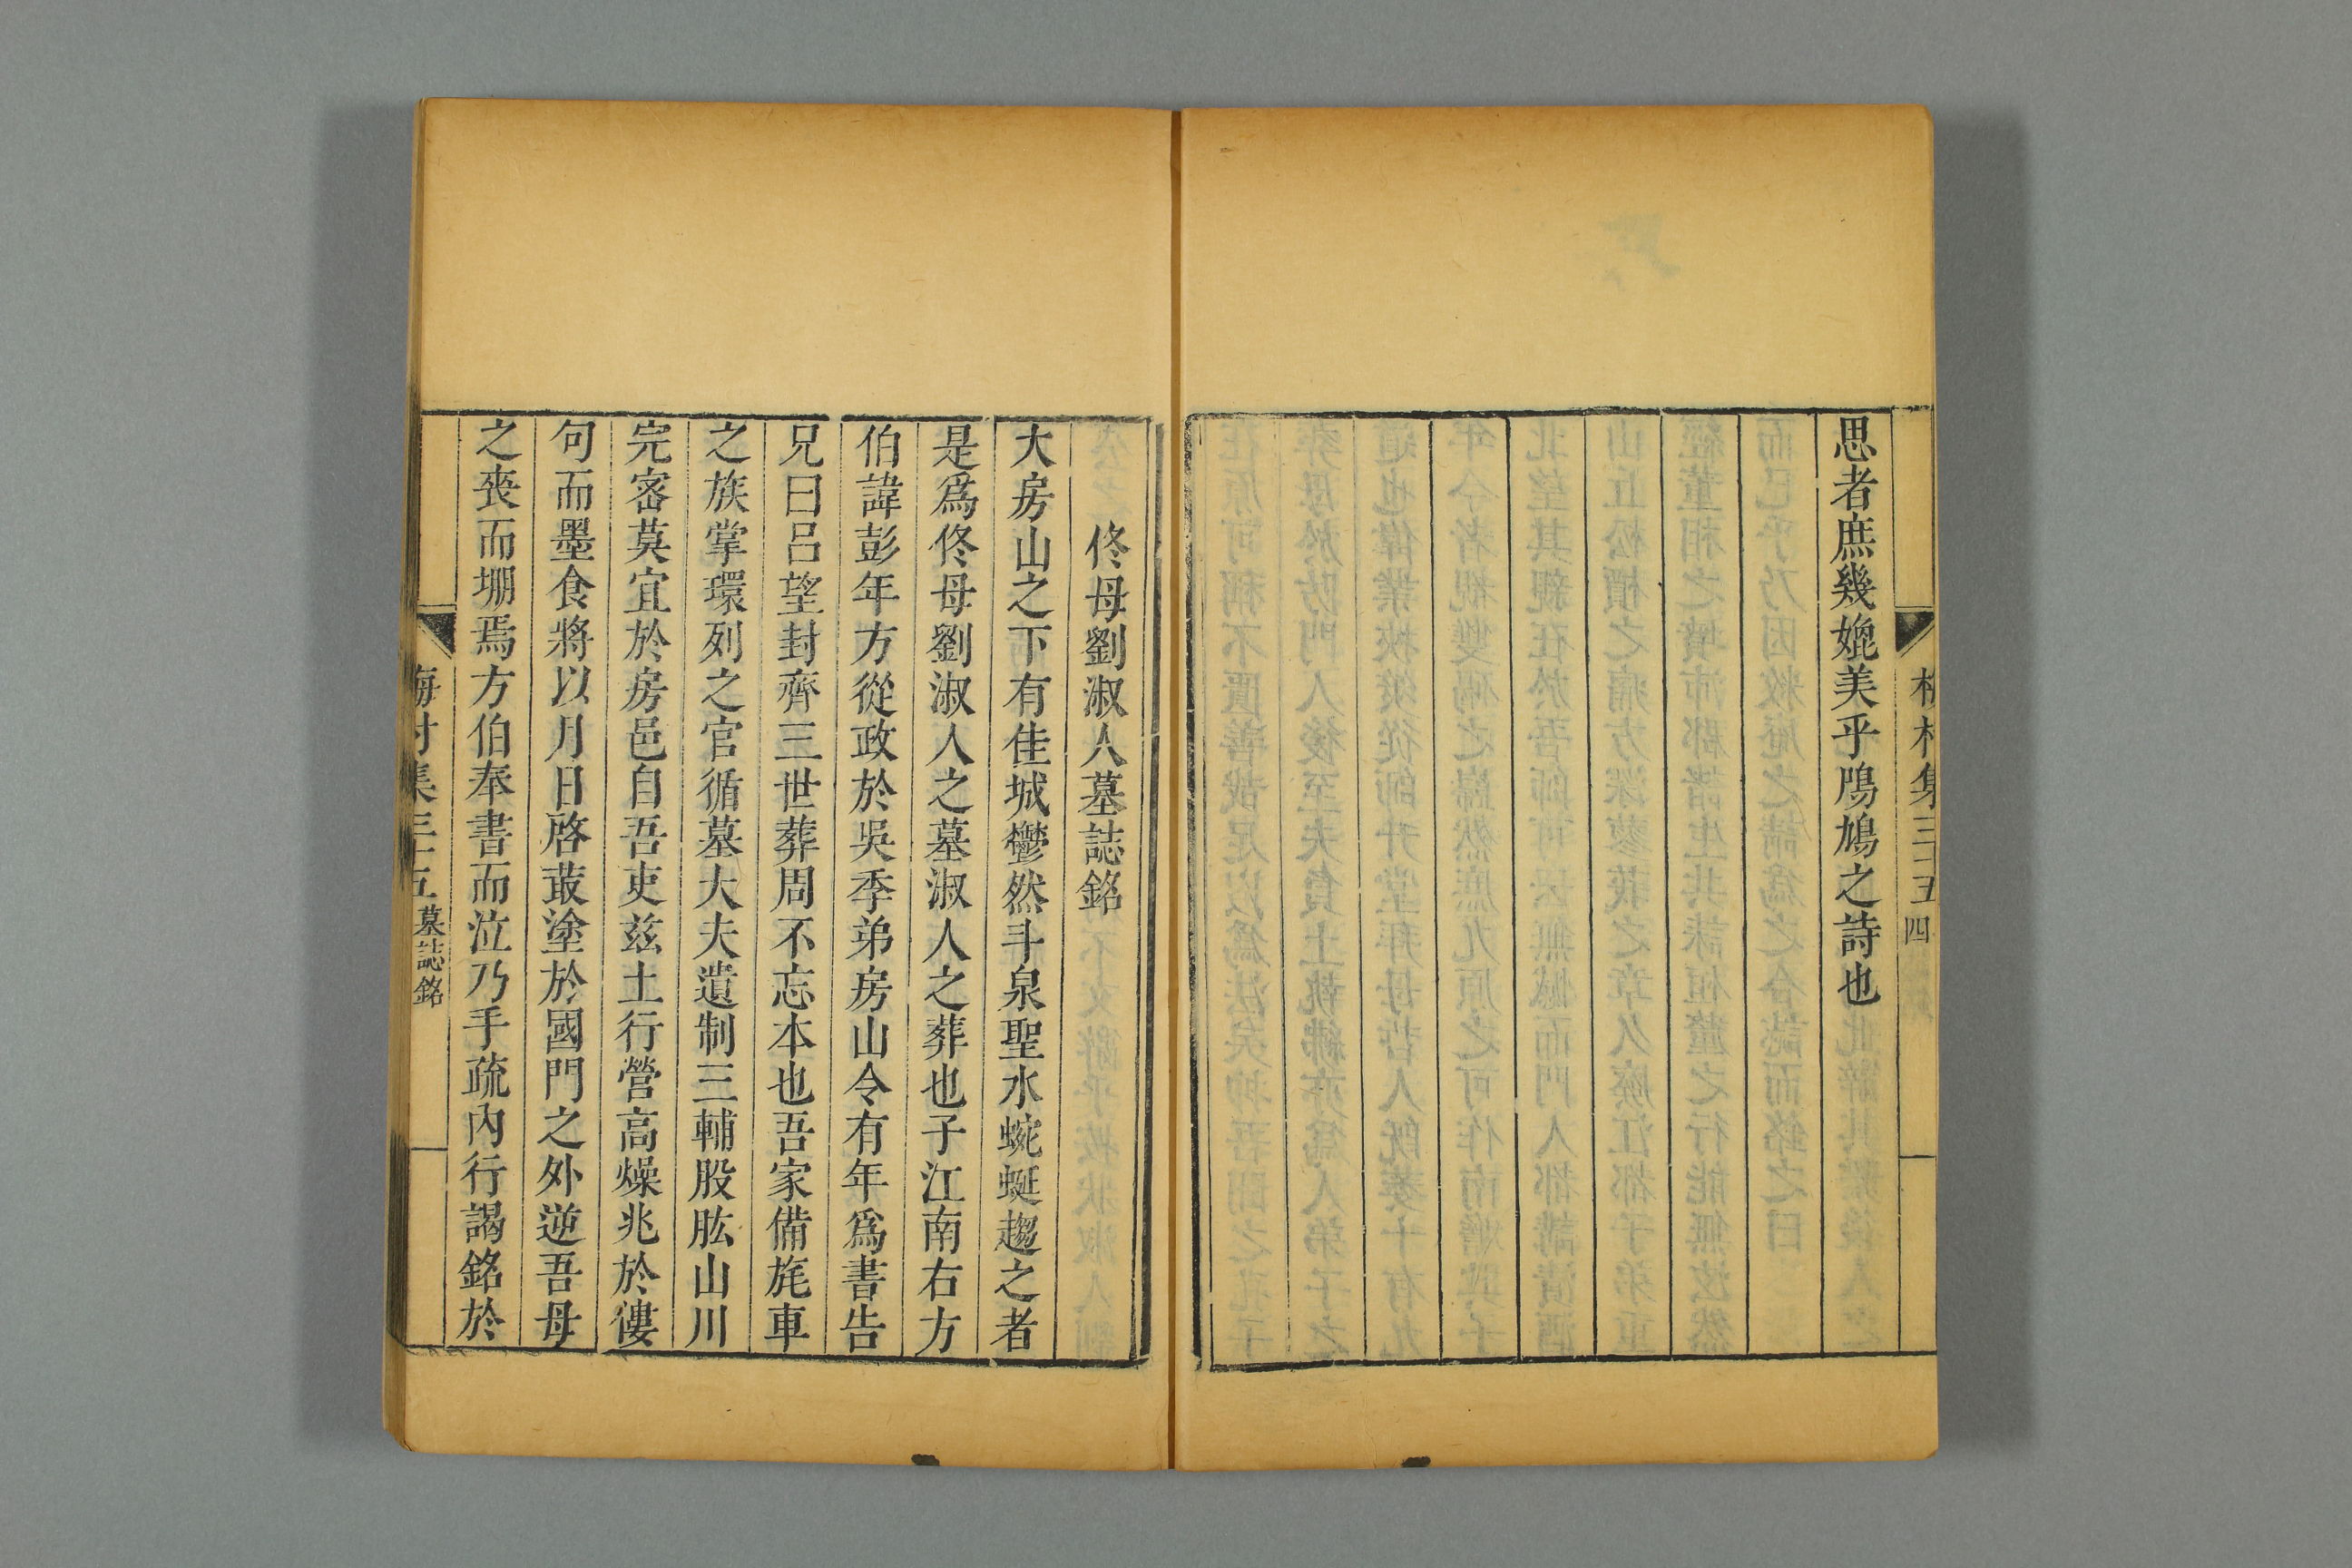 思者庶幾媲美乎鳲鳩之詩也
梅村集三十五
四
佟母劉淑人墓誌銘
大房山之下有佳城鬱然斗泉聖水蜿蜒趨之者
是爲佟母劉淑人之墓淑人之葬也子江南右方
伯諱彭年方從政於吳季弟房山令有年爲書告
兄曰呂望封齊三世葬周不忘本也吾家備旄車
之族掌環列之官循墓大夫遺制三輔股肱山川
完密莫宜於房邑自吾吏茲土行營高燥兆於僂
句而墨食將以月日啓菆塗於國門之外逆吾母
之喪而堋焉方伯奉書而泣乃手疏內行謁銘於
梅村集三十五
墓誌銘